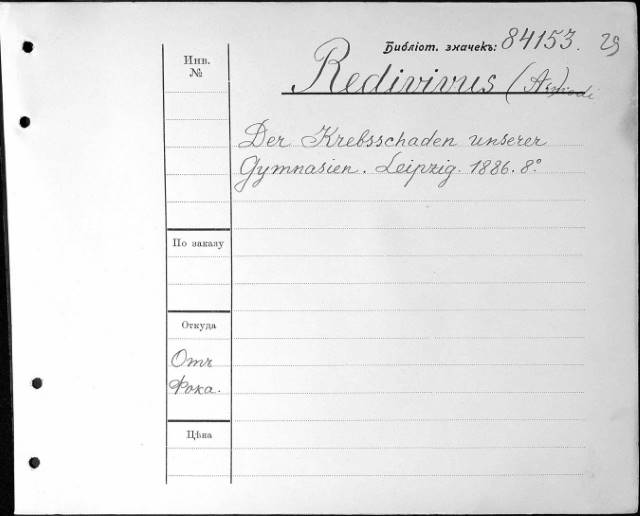 Библіот. значекъ: 84153. 29
Инв.
№
Redivivus
Der Krebsschaden unserer
Gymnasien. Leipzig. 1886. 8°.
По заказу
Откуда
Отъ
Фока.
Цѣна